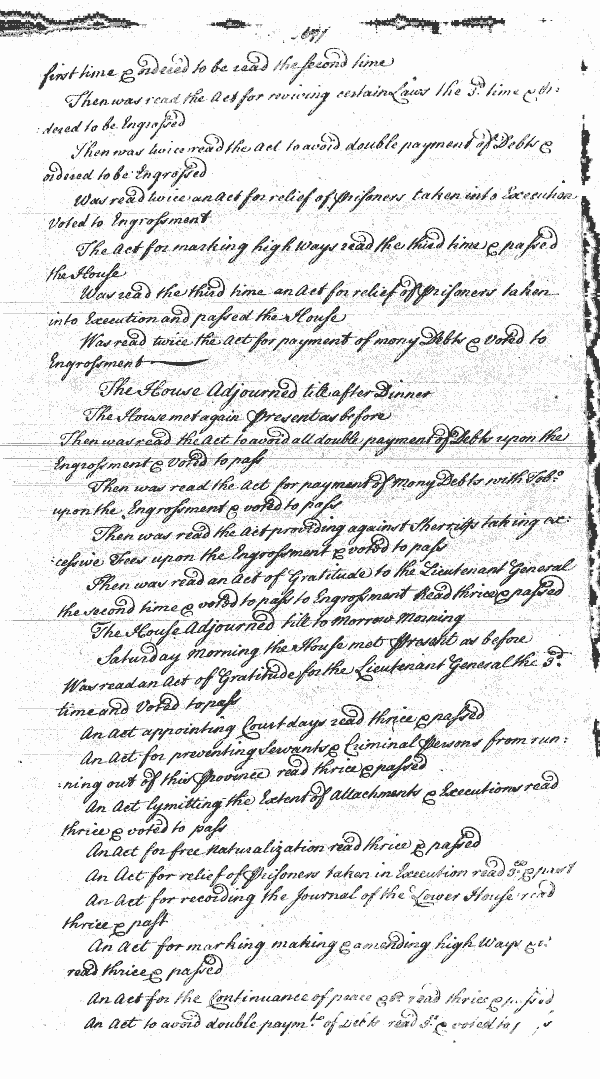 first time & ordered to be read the second time
Then was read the Act for reviving certain Laws the 3d time & Or:
:dered to be Engrossed
Then was twice read the Act to avoid double payment of Debts &
ordered to be Engrossed
Was read twice an Act for relief of Prisoners taken into Execution
Voted to Engrossment
The Act for marking high Ways read the third time & passed
the House
Was read the third time an Act for relief of Prisoners taken
into Execution and passed the House
Was read twice the Act for payment of mony Debts & voted to
Engrossment
The House Adjourned till after Dinner
The House met again Present as before
Then was read the Act to avoid all double payment of Debts upon the
Engrossment & voted to pass
Then was read the Act for payment of mony Debts with Tobo
upon the Engrossment & voted to pass
Then was read the Act providing against Sherriffs taking ex:
:cessive Fees upon the Engrossment & voted to pass
Then was read an Act of Gratitude to the Lieutenant General
the second time & voted to pass to Engrossment Read thrice & passed
The House Adjourned till to Morrow Morning
Saturday Morning the House met Present as before
Was read an Act of Gratitude for the Lieutenant General the 3d
time and Voted to pass
An Act appointing Court days read thrice & passed
An Act for preventing Servants & Criminal Persons from run:
:ning out of this Province read thrice & passed
An Act Lymitting the Extent of Attachments & Executions read
thrice & voted to pass
An Act for free Naturalization read thrice & passed
An Act for relief of Prisoners taken in Execution read 3ce & past
An Act for recording the Journal of the Lower House read
thrice & past
An Act for marking making & amending high Ways
read thrice & passed
An Act for the Continuance of peace &ca read thrice & passed
An Act to avoid double paymts of Debts read 3ce & voted to